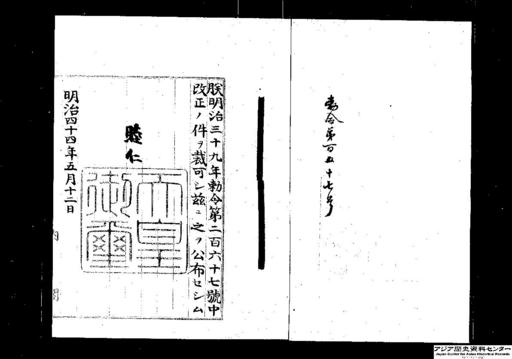 勅令第百五十七号
朕明治三十九年勅令第二百六十七號中
改正ノ件ヲ裁可シ茲ニ之ヲ公布セシム
睦仁
天皇
御璽
明治四十四年五月十二日
内閣
アジア歴史資料センター
Japan Center for Asian Historical Records